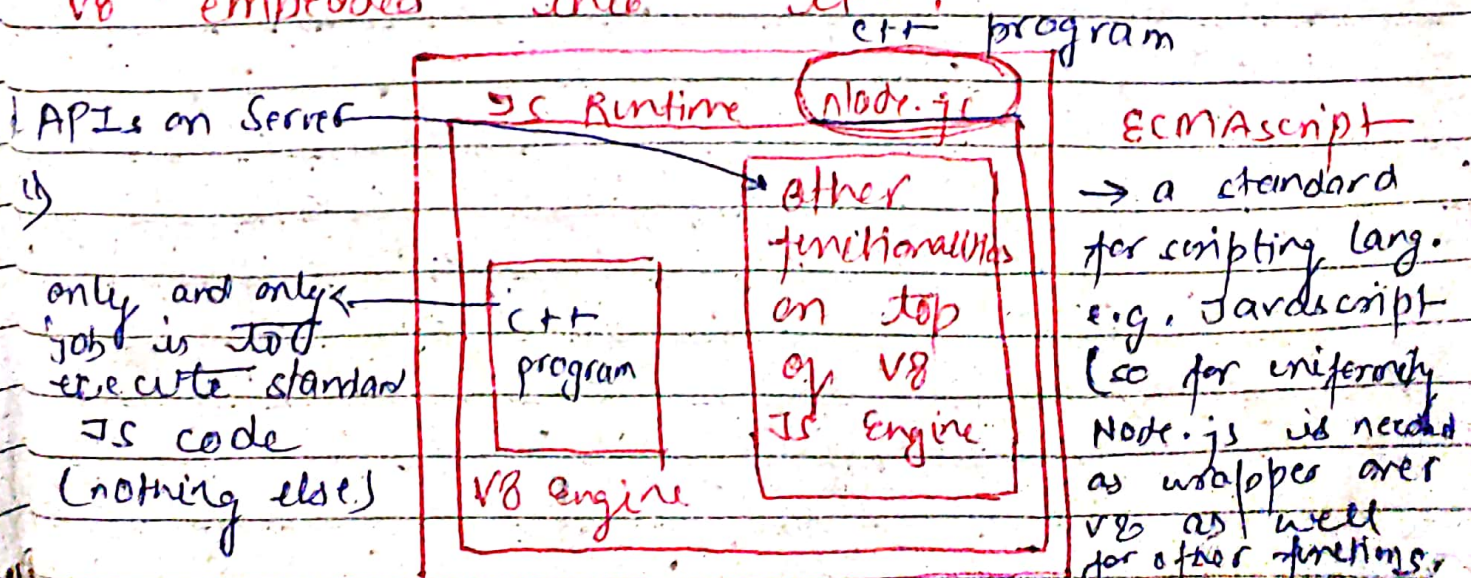 V8 embedded into
C++ program
JS Runtime Node.js
APIs on Server
1)
only and only
job is to
execute standard
JS code
(nothing else)
C++
program
V8 engine
other
functionalities
on top
of V8
JS Engine
ECMAscript
→ a standard
for scripting lang.
e.g. Javascript
(so for uniformity
Node.js is needed
as wrapper over
V8 as well
for other functions.